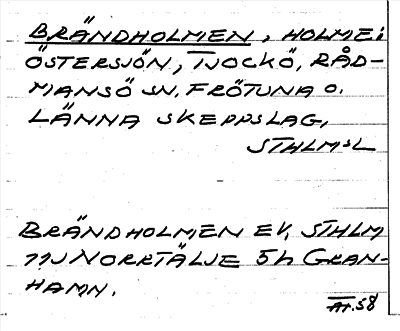 BRÄNDHOLMEN, HOLME i
ÖSTERSJÖN, TJOCKÖ, RÅD-
MANSÖ SN. FRÖTUNA O.
LÄNNA SKEPPSLAG,
STHLMS L
BRÄNDHOLMEN EK, STHLM
11J NORRTÄLJE 5h GRAN-
HAMN.
58